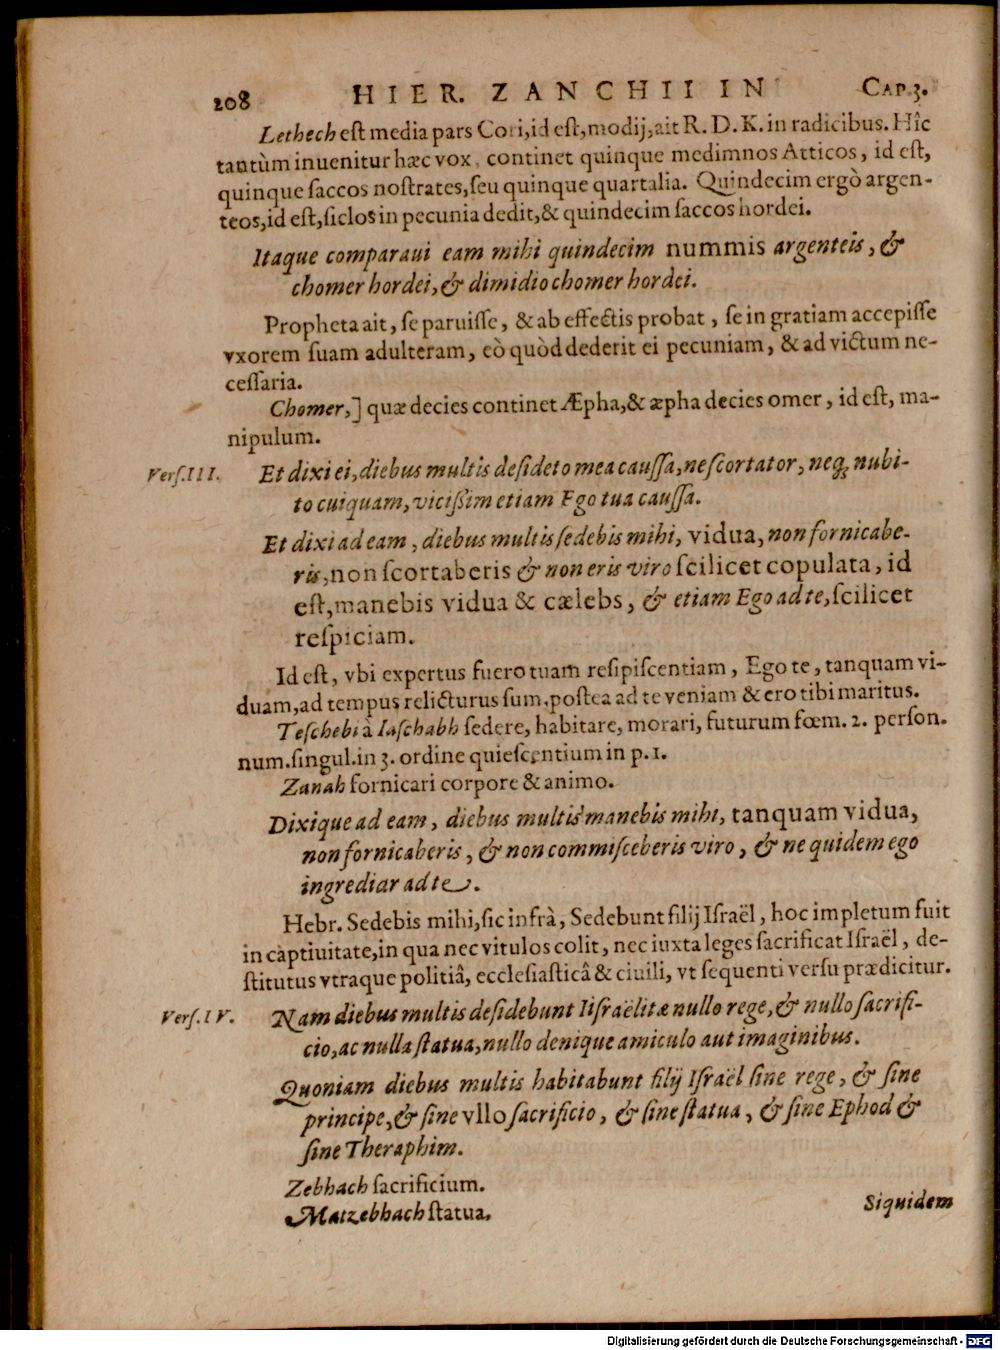 208 HIER. ZANCHII IN CAP. 3.
Lethech eſt media pars Cori, id eſt, modij, ait R. D. K. in radicibus. Hîc
tantùm inuenitur hæc vox, continet quinque medimnos Atticos, id eſt,
quinque ſaccos noſtrates, ſeu quinque quartalia. Quindecim ergò argen-
teos, id eſt, ſiclos in pecunia dedit, & quindecim ſaccos hordei.
Itaque comparaui eam mihi quindecim nummis argenteis, &
chomer hordei, & dimidio chomer hordei.
Propheta ait, ſe paruiſſe, & ab effectis probat, ſe in gratiam accepiſſe
vxorem ſuam adulteram, eò quòd dederit ei pecuniam, & ad victum ne-
ceſſaria.
Chomer,] quæ decies continet Æpha, & æpha decies omer, id eſt, ma-
nipulum.
Verſ. III. Et dixi ei, diebus multis deſideto mea cauſſa, ne ſcortator, neq; nubi-
to cuiquam, viciſſim etiam Ego tua cauſſa.
Et dixi ad eam, diebus multis ſedebis mihi, vidua, non fornicabe-
ris, non ſcortaberis & non eris viro ſcilicet copulata, id
eſt, manebis vidua & cælebs, & etiam Ego ad te, ſcilicet
reſpiciam.
Id eſt, vbi expertus fuero tuam reſipiſcentiam, Ego te, tanquam vi-
duam, ad tempus relicturus ſum. poſtea ad te veniam & ero tibi maritus.
Teſchebi à Iaſchabh ſedere, habitare, morari, futurum fœm. 2. perſon.
num. ſingul. in 3. ordine quieſcentium in p. 1.
Zanah fornicari corpore & animo.
Dixique ad eam, diebus multis manebis mihi, tanquam vidua,
non fornicaberis, & non commiſceberis viro, & ne quidem ego
ingrediar ad te.
Hebr. Sedebis mihi, ſic infrà, Sedebunt filij Iſraël, hoc impletum fuit
in captiuitate, in qua nec vitulos colit, nec iuxta leges ſacrificat Iſraël, de-
ſtitutus vtraque politiâ, eccleſiaſticâ & ciuili, vt ſequenti verſu prædicitur.
Verſ. IV. Nam diebus multis deſidebunt Iiſraëlitæ nullo rege, & nullo ſacrifi-
cio, ac nulla ſtatua, nullo denique amiculo aut imaginibus.
Quoniam diebus multis habitabunt filij Iſraël ſine rege, & ſine
principe, & ſine vllo ſacrificio, & ſine ſtatua, & ſine Ephod &
ſine Theraphim.
Zebhach ſacrificium.
Matzebhach ſtatua.
Siquidem
Digitalisierung gefördert durch die Deutsche Forschungsgemeinschaft - DFG